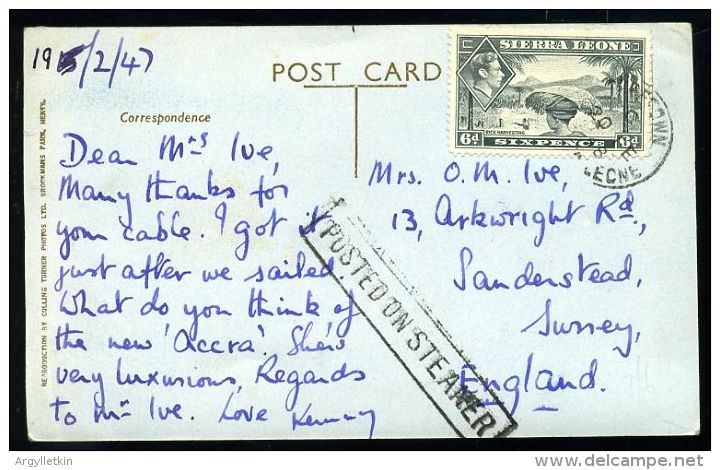 19/2/47
POST CARD
Correspondence
Dear Mrs Ive,
Many thanks for
your cable. I got it
just after we sailed.
What do you think of
the new 'Accra'. She's
very luxurious, Regards
to Mr Ive. Love
REPRODUCTION BY CULLING TURNER PHOTOS LTD. BROOKMANS PARK, HERTS.
SIERRA LEONE
RICE HARVESTING
6d SIXPENCE 6d
LEONE
Mrs. O.M. Ive,
13, Arkwright Rd.,
Sanderstead,
Surrey,
England.
POSTED ON STEAMER
Argylletkin
delcampe.net